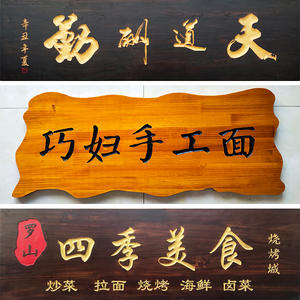 天道酬勤
辛丑年夏
巧妇手工面
罗山
四季美食
烧烤城
炒菜 拉面 烧烤 海鲜 卤菜